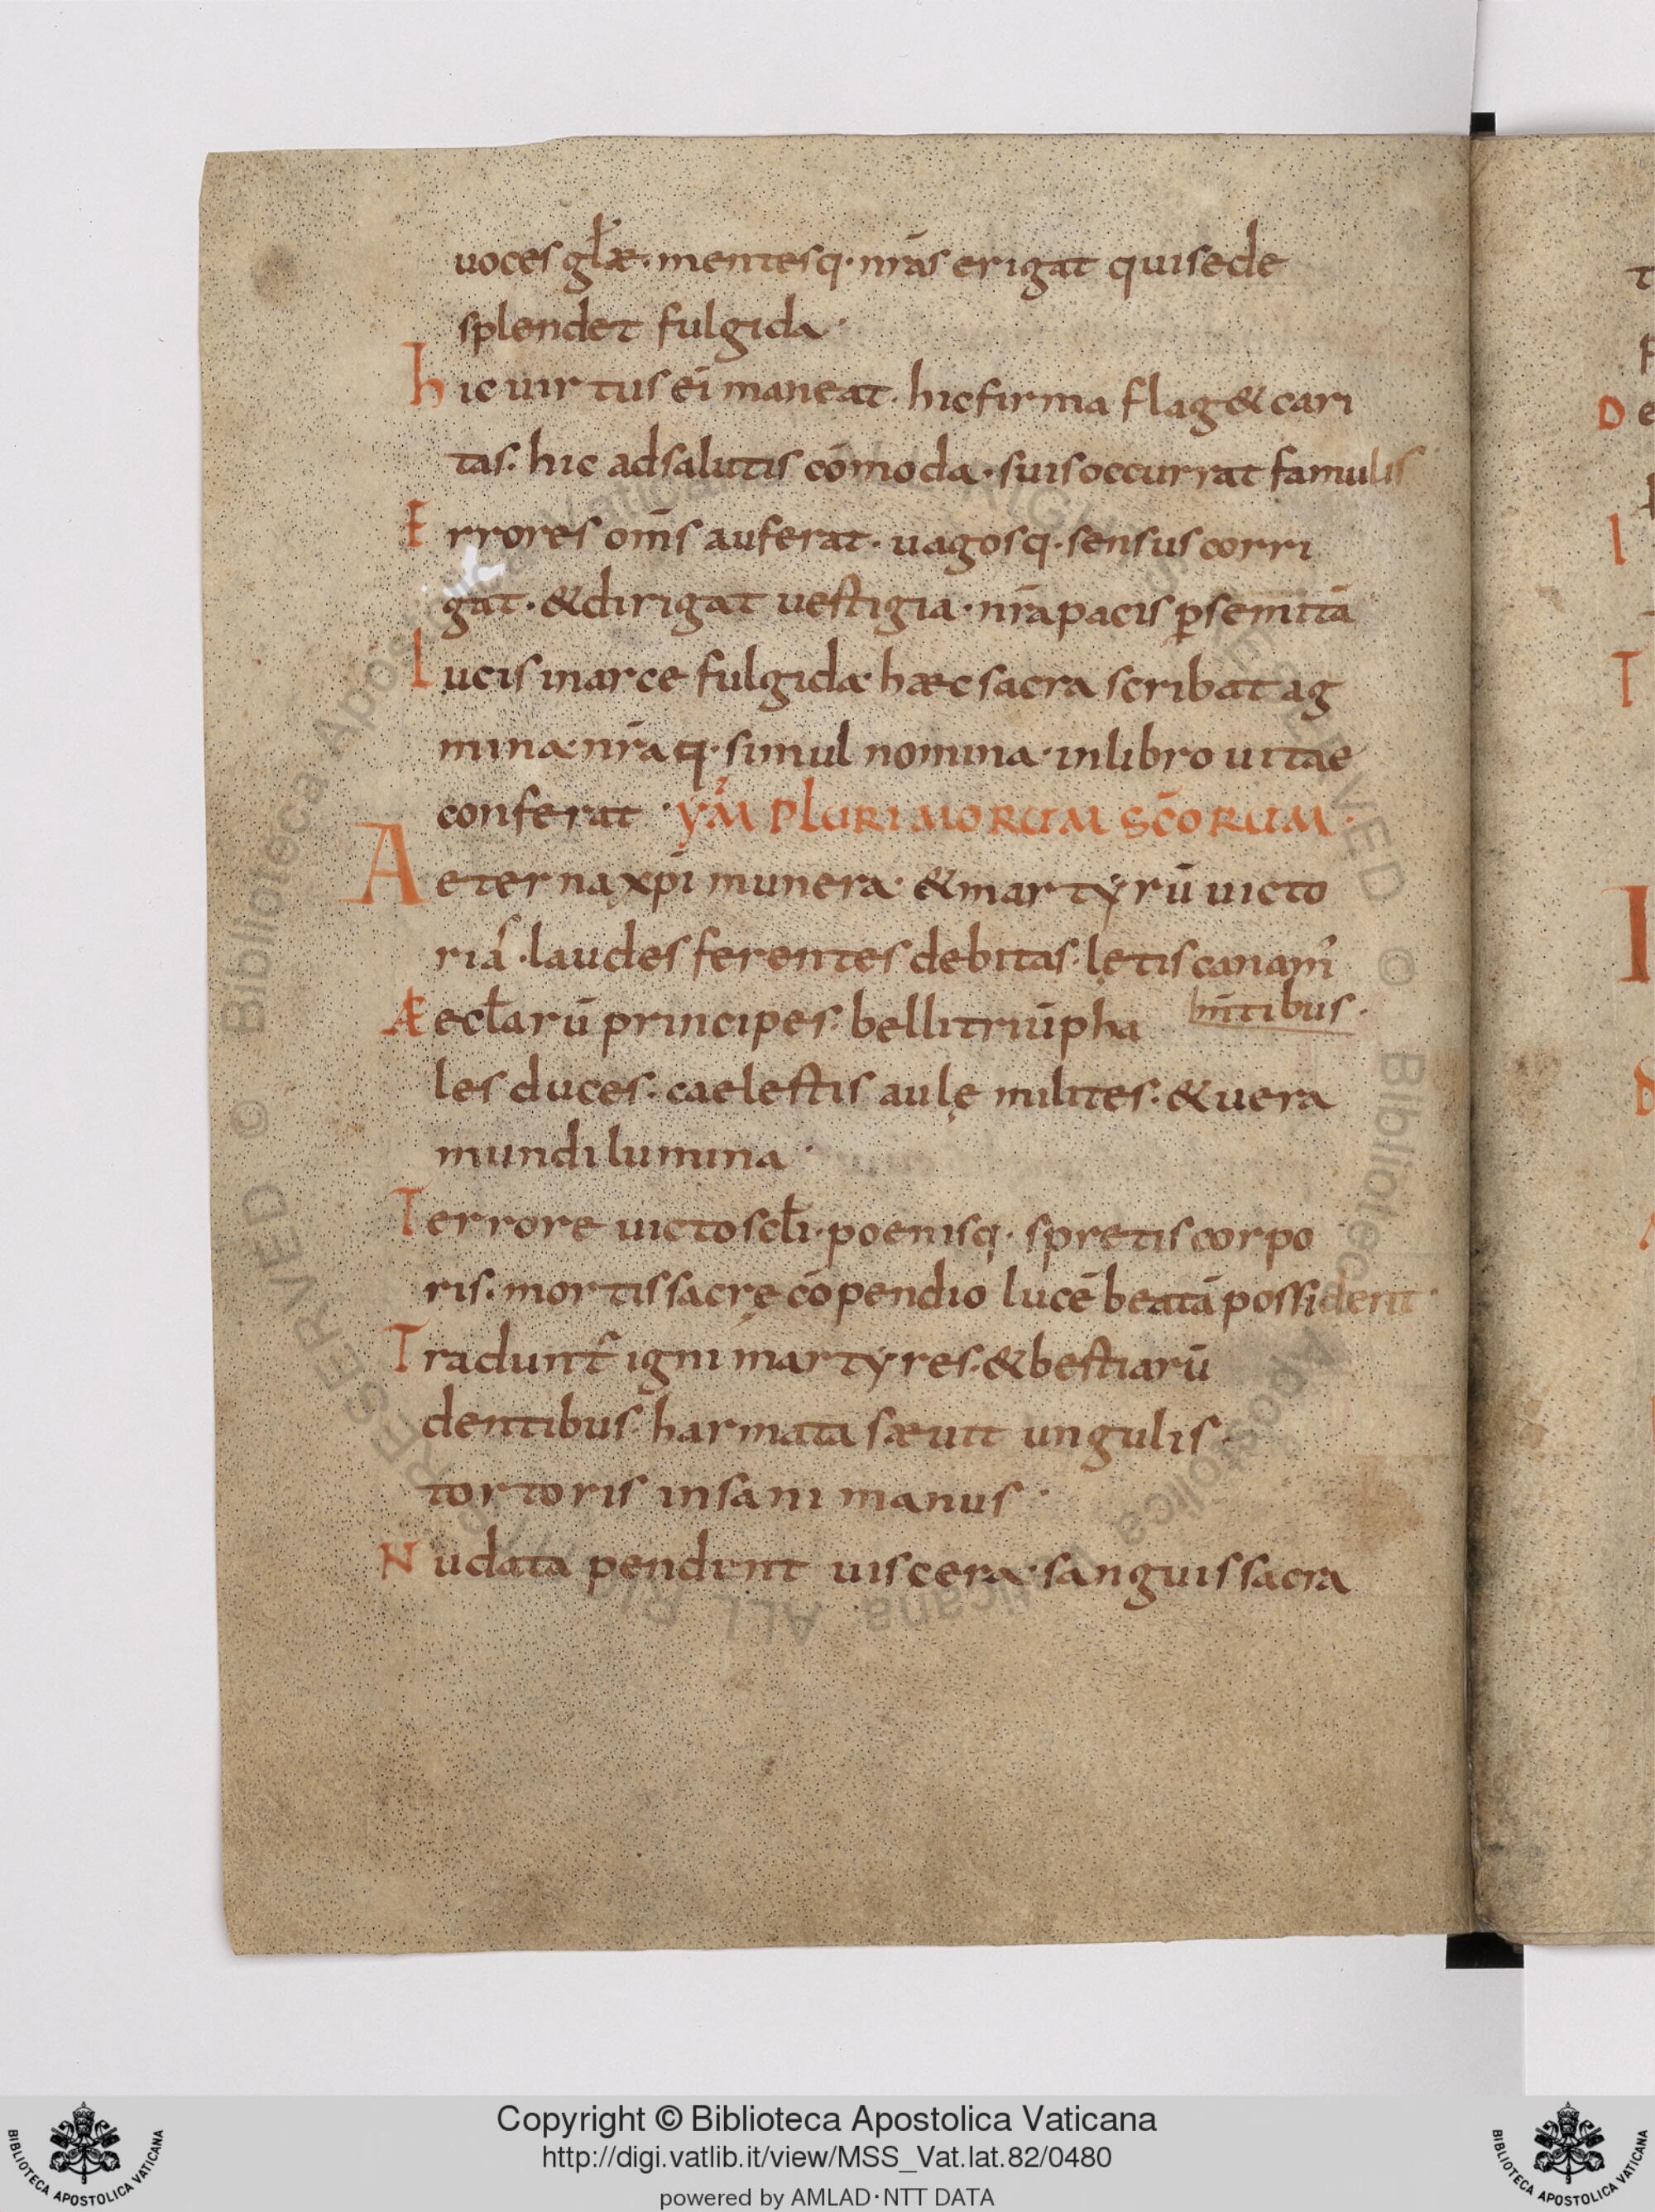 uoces gl̄æ · mentesq · nr̄as erigat qui sede
splendet fulgida ·
hic uirtus ei maneat · hic firma flag& cari
tas · hic ad salutis cōmoda · suis occurrat famulis
Errores om̄s auferat · uagosq · sensus corri
gat · & dirigat uestigia · nr̄a pacis ꝑ semitā
Lucis in arce fulgida · hæc sacra scribat ag
mina · nr̄aq · simul nomina · in libro uitae
conferat · YM̄ PLURIMORUM SC̄ORUM ·
Aeterna xp̄i munera · & martyrū uicto
riā · laudes ferentes debitas · lętis canam᾽
Æecl̄arū principes · belli triūpha m̄tibus ·
les duces · caelestis aulę milites · & uera
mundi lumina ·
Terrore uicto scl̄i · poenisq · spretis corpo
ris · mortis sacrę cōpendio lucē beatā possident ·
Tradunt᷑ igni martyres · & bestiarū
dentibus · harmata sæuit ungulis ·
tortoris insani manus ·
Nudata pendunt uiscera · sanguis sacra
t
p
D e
I
T
I
Biblioteca Apostolica Vaticana ALL RIGHTS RESERVED ©
Biblioteca Apostolica Vaticana ALL RIGHTS RESERVED ©
Copyright © Biblioteca Apostolica Vaticana
http://digi.vatlib.it/view/MSS_Vat.lat.82/0480
powered by AMLAD·NTT DATA
BIBLIOTECA APOSTOLICA VATICANA
BIBLIOTECA APOSTOLICA VATICANA